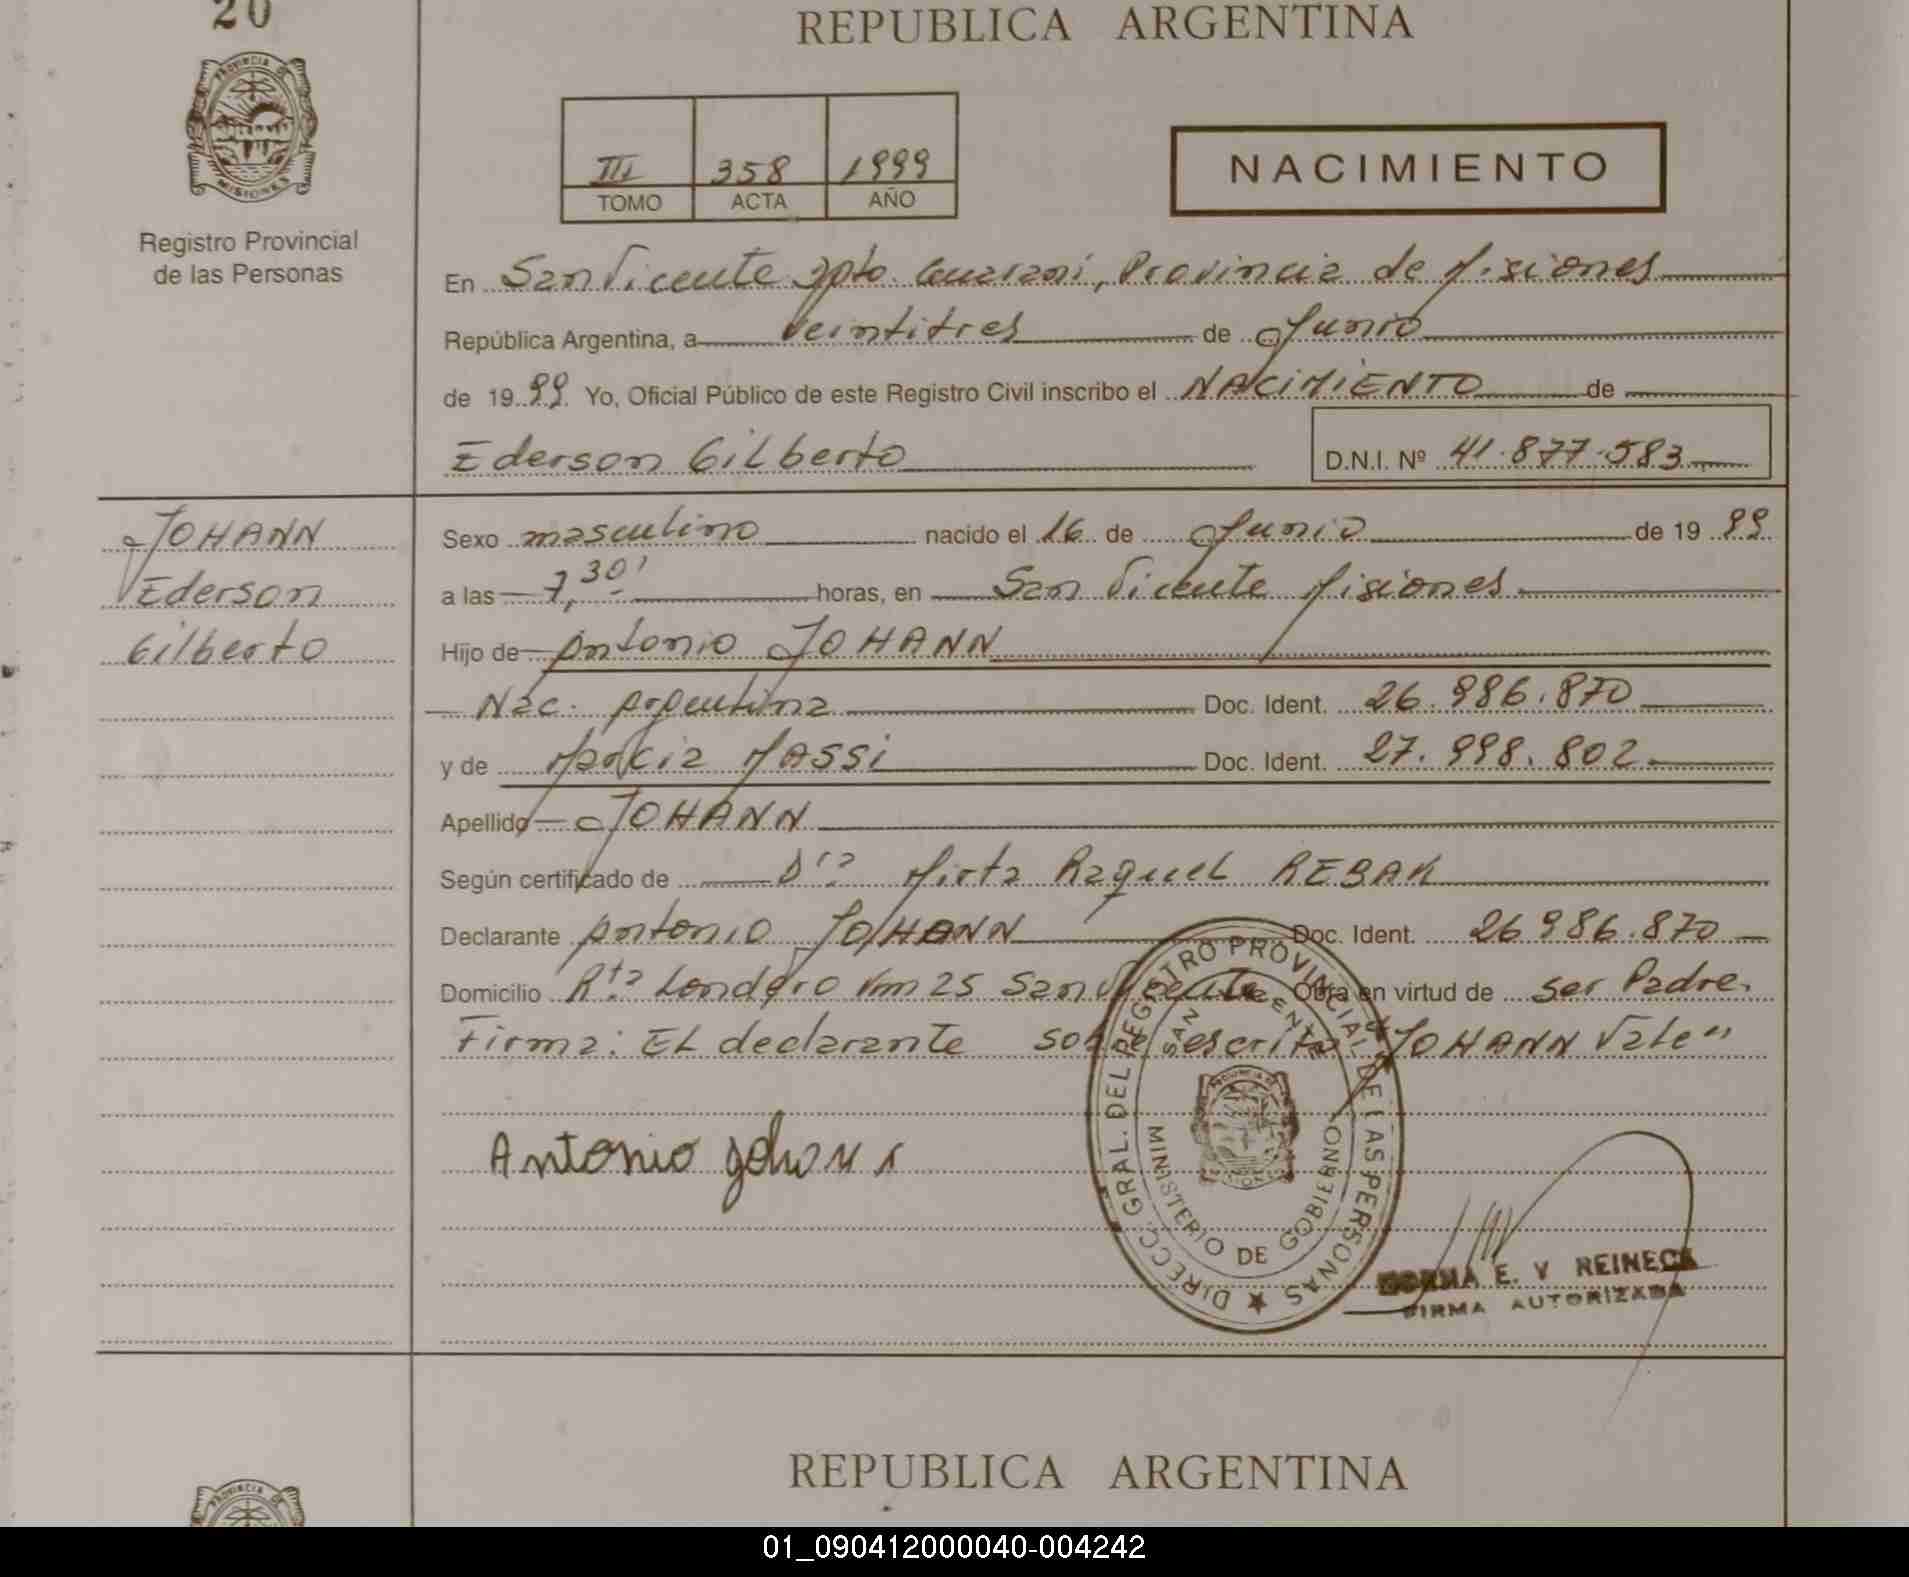 20
REPUBLICA ARGENTINA
PROVINCIA DE
MISIONES
Registro Provincial
de las Personas
III 358 1999
TOMO ACTA AÑO
NACIMIENTO
En San Vicente Dpto. Guarani, Provincia de Misiones
República Argentina, a veintitres de Junio
de 1999 Yo, Oficial Público de este Registro Civil inscribo el NACIMIENTO de
Ederson Gilberto D.N.I. Nº 41.877.583
JOHANN
Ederson
Gilberto
Sexo masculino nacido el 16 de Junio de 1999
a las 7,30' horas, en San Vicente Misiones
Hijo de Antonio JOHANN
Nac. Argentina Doc. Ident. 26.986.870
y de Marcia MASSI Doc. Ident. 27.998.802
Apellido JOHANN
Según certificado de Dra Mirta Raquel REBAK
Declarante Antonio JOHANN Doc. Ident. 26986.870
Domicilio Rta Londero Km 25 San Vicente Obra en virtud de ser Padre.
Firma: El declarante sobre escrito "JOHANN Vale"
Antonio Johann
DIRECC. GRAL. DEL REGISTRO PROVINCIAL DE LAS PERSONAS
SAN VICENTE
MINISTERIO DE GOBIERNO
NORMA E. V REINECK
FIRMA AUTORIZADA
REPUBLICA ARGENTINA
PROVINCIA DE
01_090412000040-004242